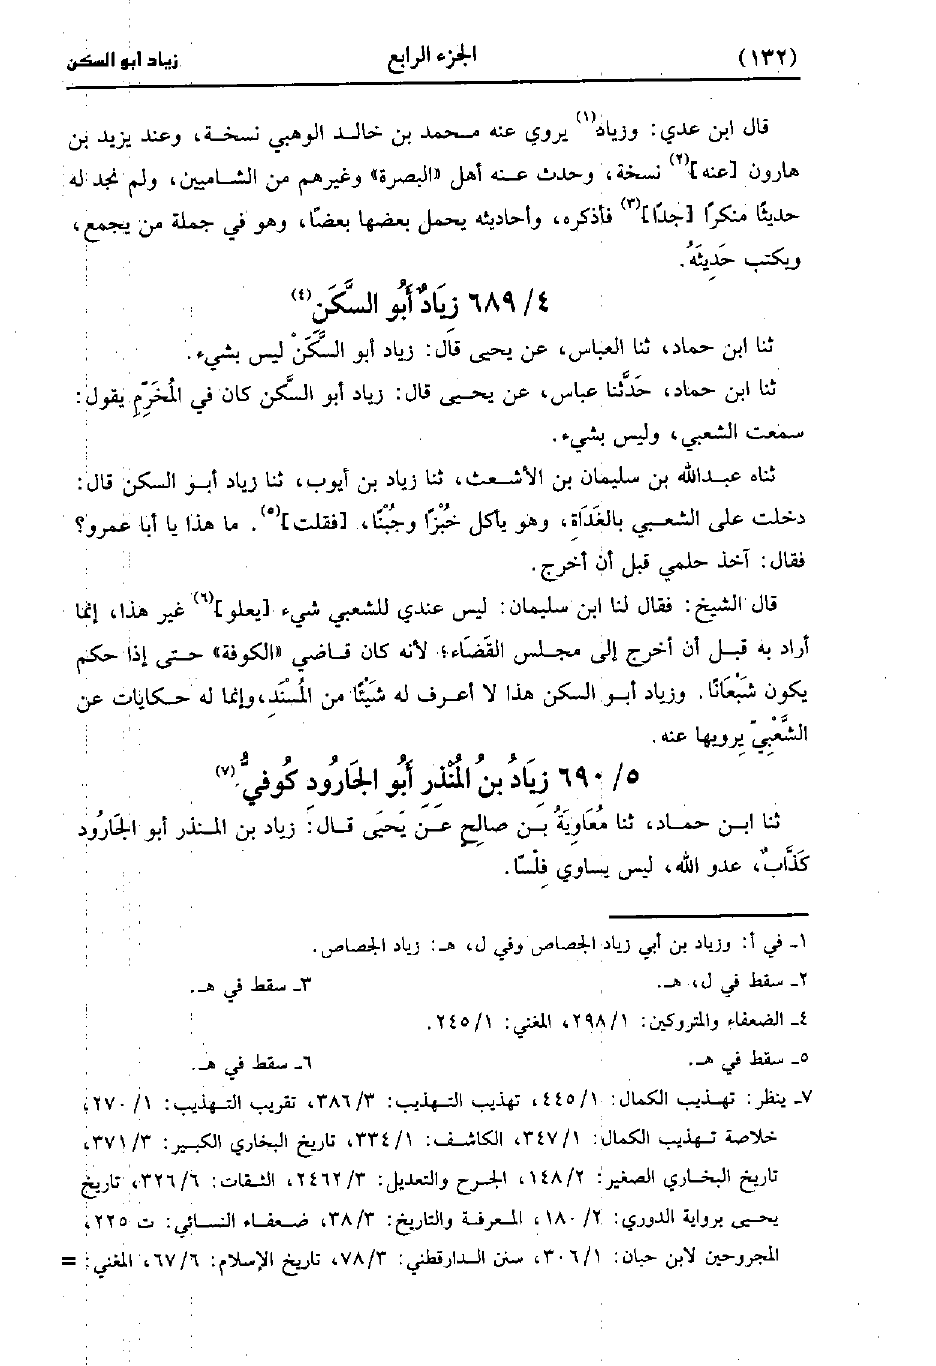 (١٣٢) الجزء الرابع زياد أبو السكن
قال ابن عدي: وزياد(١) يروي عنه محمد بن خالد الوهبي نسخة، وعند يزيد بن
هارون [عنه](٢) نسخة، وحدث عنه أهل «البصرة» وغيرهم من الشاميين، ولم نجد له
حديثًا منكرًا [جدًا](٣) فأذكره، وأحاديثه يحمل بعضها بعضًا، وهو في جملة من يجمع،
ويكتب حَدِيثَهُ.
٤/ ٦٨٩ زِيَادٌ أَبُو السَّكَنِ(٤)
ثنا ابن حماد، ثنا العباس، عن يحيى قال: زياد أبو السَّكَنْ ليس بشيء.
ثنا ابن حماد، حَدَّثنا عباس، عن يحيى قال: زياد أبو السَّكن كان في المُخَرِّمِ يقول:
سمعت الشعبي، وليس بشيء.
ثناه عبدالله بن سليمان بن الأشعث، ثنا زياد بن أيوب، ثنا زياد أبو السكن قال:
دخلت على الشعبي بالغَدَاةِ، وهو يأكل خُبْزًا وجُبْنًا، [فقلت](٥). ما هذا يا أبا عمرو؟
فقال: آخذ حلمي قبل أن أخرج.
قال الشيخ: فقال لنا ابن سليمان: ليس عندي للشعبي شيء [يعلو](٦) غير هذا، إنما
أراد به قبل أن أخرج إلى مجلس القَضَاء؛ لأنه كان قاضي «الكوفة» حتى إذا حكم
يكون شَبْعَانًا. وزياد أبو السكن هذا لا أعرف له شَيْئًا من المُسْنَدِ، وإنما له حكايات عن
الشَّعْبِيِّ يرويها عنه.
٥/ ٦٩٠ زِيَادُ بنُ المُنْذِرِ أَبُو الجَارُودِ كُوفيٌّ(٧)
ثنا ابن حماد، ثنا مُعَاوِيَةُ بن صالح عن يَحيَى قال: زياد بن المنذر أبو الجَارُود
كَذَّابٌ، عدو الله، ليس يساوي فِلْسًا.
١ـ في أ: وزياد بن أبي زياد الجصاص وفي ل، هـ: زياد الجصاص.
٢ـ سقط في ل، هـ. ٣ـ سقط في هـ.
٤ـ الضعفاء والمتروكين: ١/ ٢٩٨، المغني: ١/ ٢٤٥.
٥ـ سقط في هـ. ٦ـ سقط في هـ.
٧ـ ينظر: تهذيب الكمال: ١/ ٤٤٥، تهذيب التهذيب: ٣/ ٣٨٦، تقريب التهذيب: ١/ ٢٧٠،
خلاصة تهذيب الكمال: ١/ ٣٤٧، الكاشف: ١/ ٣٣٤، تاريخ البخاري الكبير: ٣/ ٣٧١،
تاريخ البخاري الصغير: ٢/ ١٤٨، الجرح والتعديل: ٣/ ٢٤٦٢، الثقات: ٦/ ٣٢٦، تاريخ
يحيى برواية الدوري: ٢/ ١٨٠، المعرفة والتاريخ: ٣/ ٣٨، ضعفاء النسائي: ت ٢٢٥،
المجروحين لابن حبان: ١/ ٣٠٦، سنن الدارقطني: ٣/ ٧٨، تاريخ الإسلام: ٦/ ٦٧، المغني: =